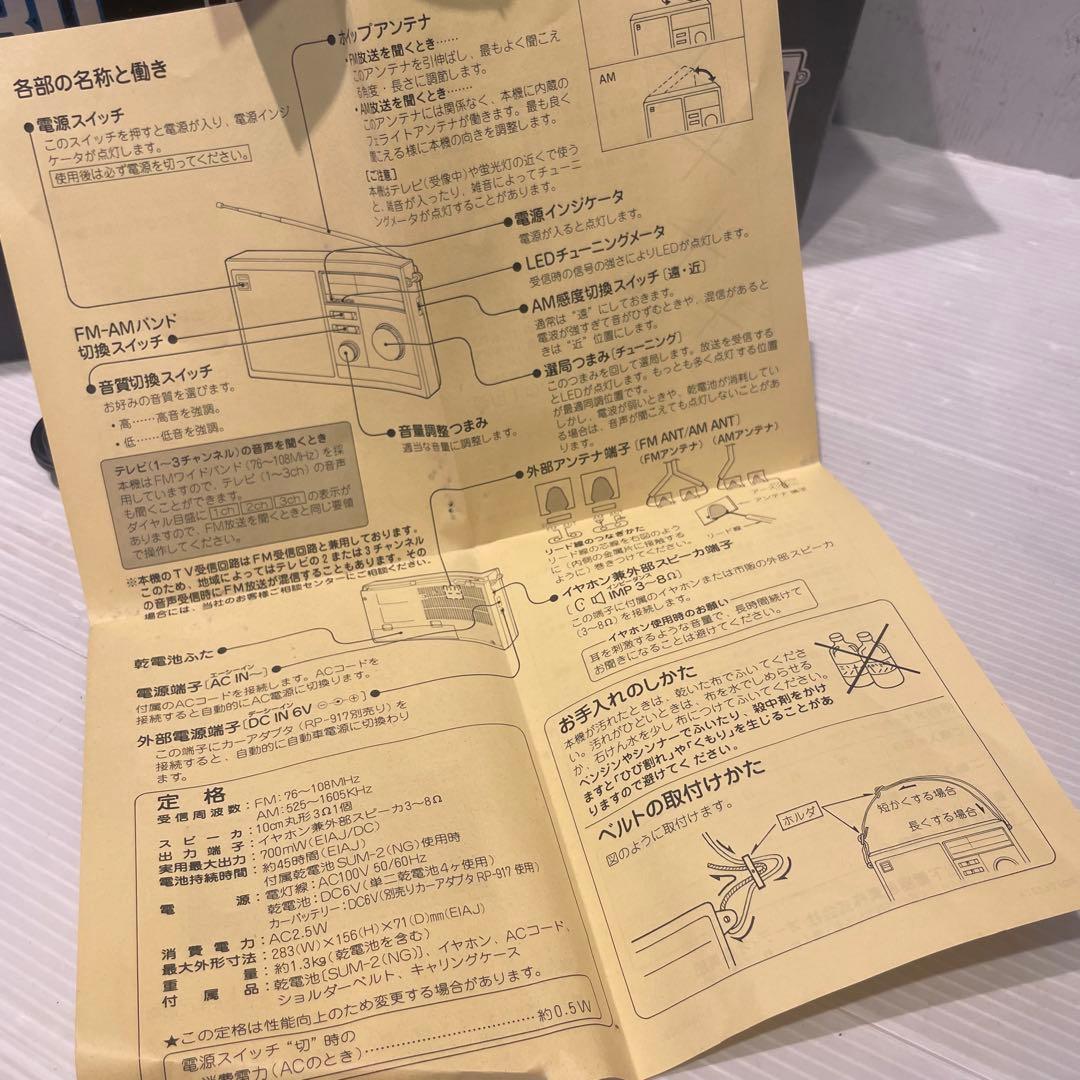 各部の名称と働き
●電源スイッチ
このスイッチを押すと電源が入り、電源インジ
ケータが点灯します。
使用後は必ず電源を切ってください。
●ホイップアンテナ
・FM放送を聞くとき……
このアンテナを引伸ばし、最もよく聞こえ
る角度・長さに調節します。
・AM放送を聞くとき……
このアンテナには関係なく、本機に内蔵の
フェライトアンテナが働きます。最も良く
聞こえる様に本機の向きを調整します。
[ご注意]
本機はテレビ(受像中)や蛍光灯の近くで使う
と、雑音が入ったり、雑音によってチューニ
ングメータが点灯することがあります。
AM
●電源インジケータ
電源が入ると点灯します。
●LEDチューニングメータ
受信時の信号の強さによりLEDが点灯します。
●AM感度切換スイッチ[遠・近]
通常は“遠”にしておきます。
電波が強すぎて音がひずむときや、混信があると
きは“近”位置にします。
●選局つまみ[チューニング]
このつまみを回して選局します。放送を受信する
とLEDが点灯します。もっとも多く点灯する位置
が最適同調位置です。
しかし、電波が弱いときや、乾電池が消耗してい
る場合は、音声が聞こえても点灯しないことがあ
ります。
FM-AMバンド
切換スイッチ●
●音質切換スイッチ
お好みの音質を選びます。
・高……高音を強調。
・低……低音を強調。
●音量調整つまみ
適当な音量に調整します。
テレビ(1~3チャンネル)の音声を聞くとき
本機はFMワイドバンド(76~108MHz)を採
用していますので、テレビ(1~3ch)の音声
も聞くことができます。
ダイヤル目盛に 1ch 2ch 3ch の表示が
ありますので、FM放送を聞くときと同じ要領
で操作してください。
※本機のTV受信回路はFM受信回路と兼用しております。
このため、地域によってはテレビの2または3チャンネル
の音声受信時にFM放送が混信することもあります。その
場合には、当社のお客様ご相談センターにご相談ください。
●外部アンテナ端子[FM ANT/AM ANT]
(FMアンテナ)
(AMアンテナ)
アンテナ端子
リード線
リード線のつなぎかた
リード線の芯線を右図のよう
に(内側の金属片に接触する
ように)巻きつけてください。
●イヤホン兼外部スピーカ端子
インピーダンス
IMP 3~8Ω]
この端子に付属のイヤホンまたは市販の外部スピーカ
(3~8Ω)を接続します。
イヤホン使用時のお願い
耳を刺激するような音量で、長時間続けて
お聞きになることは避けてください。
乾電池ふた●
エーシーイン
電源端子[AC IN~]●
付属のACコードを接続します。ACコードを
接続すると自動的にAC電源に切換ります。
デーシーイン
外部電源端子[DC IN 6V ⊖-●-⊕]●
この端子にカーアダプタ(RP-917別売り)を
接続すると、自動的に自動車電源に切換わり
ます。
定格
受信周波数:FM:76~108MHz
AM:525~1605KHz
スピーカ:10cm丸形3Ω1個
出力端子:イヤホン兼外部スピーカ3~8Ω
実用最大出力:700mW(EIAJ/DC)
電池持続時間:約45時間(EIAJ)
付属乾電池SUM-2(NG)使用時
電源:電灯線:AC100V 50/60Hz
乾電池:DC6V(単二乾電池4ヶ使用)
カーバッテリー:DC6V(別売りカーアダプタRP-917使用)
消費電力:AC2.5W
最大外形寸法:283(W)×156(H)×71(D)mm(EIAJ)
重量:約1.3kg(乾電池を含む)
付属品:乾電池[SUM-2(NG)]、イヤホン、ACコード、
ショルダーベルト、キャリングケース
★この定格は性能向上のため変更する場合があります。
電源スイッチ“切”時の
消費電力(ACのとき)……約0.5W
お手入れのしかた
本機が汚れたときは、乾いた布でふいてくださ
い。汚れがひどいときは、布を水でしめらせる
か、石けん水を少し布につけてふいてください。
ベンジンやシンナーでふいたり、殺中剤をかけ
ますと「ひび割れ」や「くもり」を生じることがあ
りますので避けてください。
シンナー
ベルトの取付けかた
図のように取付けます。
ホルダ
短かくする場合
長くする場合